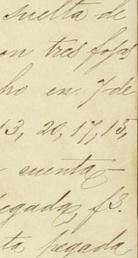 suelta de
on tres fojas
ho en 7 de
13, 20, 17, 15,
cuenta-
pegada, fs.
ta pegada